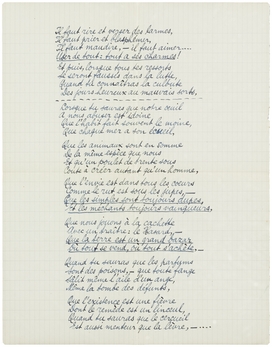 Il faut rire et verser des larmes,
Il faut prier et blasphémer,
Il faut maudire, — il faut aimer....
User de tout: tout a ses charmes!
Et puis, lorsque tous ses ressorts
Se seront faussés dans la lutte,
Quand tu connaîtras la culbute
Des pourvoyeurs au mauvais sorts,
Lorsque tu sauras que notre œuil
A nous abuser est idoine
Que l'habit fait souvent le moine,
Que chaque mer a son écueil,
Que les animaux sont en somme
De la même espèce que nous
Et qu'un poulet de trente sous
Coûte à créer autant qu'un homme,
Que l'envie est dans tous les cœurs
Comme le rut est sous les jupes,—
Que les simples sont toujours dupes,
Et les méchants toujours vainqueurs.
Que nous jouons à la cachette
Avec un traître: le hasard,—
Que la terre est un grand bazar
Où tout se vend, où tout s'achète.
Quand tu sauras que les parfums
Sont des poisons,— que toute fange
Salit même l'aile d'un ange,
Même la tombe des défunts,
Que l'existence est une fièvre
Dont le remède est un linceul,
Quand tu sauras que le cercueil
Est aussi menteur que la lèvre,—....